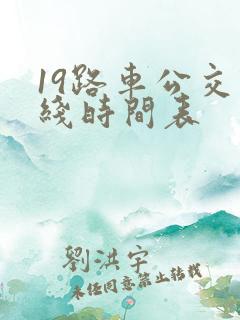 19路車公交
綫時間表
劉洪宇
未经同意禁止转载